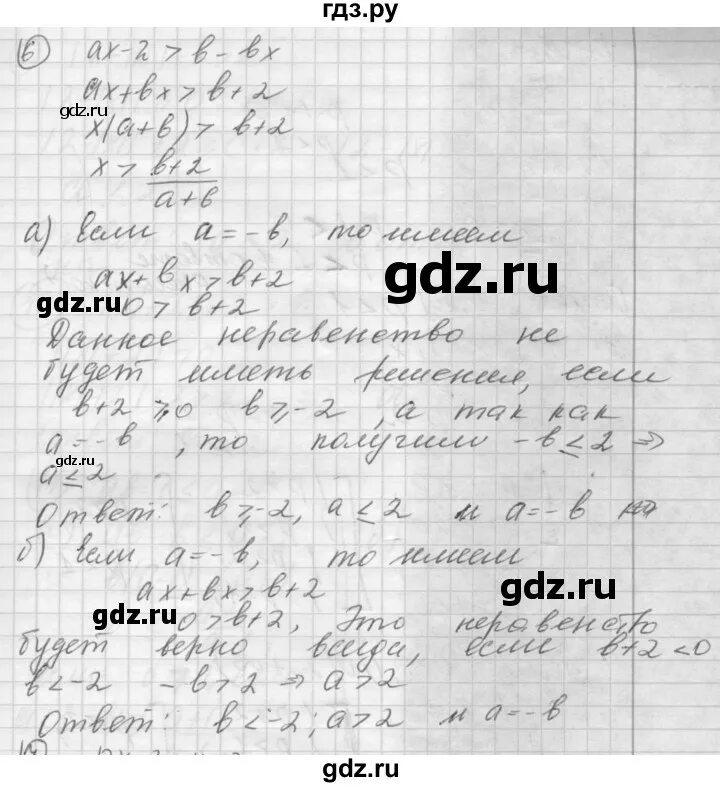 гдз.ру
6) ax - 2 > b - bx
ax + bx > b + 2
gdz.ru
x(a + b) > b + 2
x > b+2/a+b
а) Если a = -b, то имеем
ax + bx > b + 2
gdz.ru
gdz.ru
0 > b + 2
Данное неравенство не
будет иметь решения, если
b + 2 ≥ 0 b ≥ -2, а так как
a = -b, то получили -b ≤ 2 ⇒
gdz.ru
a ≤ 2
Ответ: b ≥ -2, a ≤ 2 и a = -b
б) Если a = -b, то имеем
ax + bx > b + 2
gdz.ru
gdz.ru
0 > b + 2, Это неравенство
будет верно всегда, если b + 2 < 0
b < -2 -b > 2 ⇒ a > 2
Ответ: b < -2; a > 2 и a = -b
gdz.ru